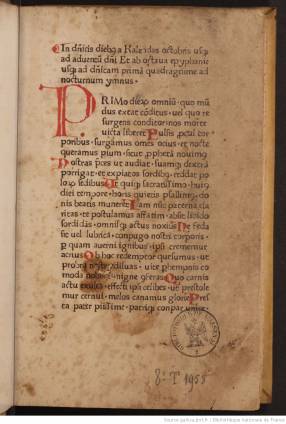 In dñicis diebꝫ a Kalendas octobris usqꝫ
ad aduentū dñi Et ab octaua epyphanie
usqꝫ ad dñicam primā quadragesime ad
nocturnum ymnus.
PRIMo dieꝝ omniū quo mū
dus extat cōditus uel quo re
surgens conditor nos morte
uicta liberet Pulsis procul tor
poribus surgamus omēs ocius et nocte
queramus pium sicut prophetā nouimꝰ
Nostras preces ut audiat suamqꝫ dexterā
porrigat et expiatos sordibꝫ reddat po
lorū sedibus Ut quiqꝫ sacratissimo huiꝰ
diei tempore horis quietis psallimꝰ do
nis beatis muneret Iam nūc paterna cla
ritas te postulamus affatim absit libido
sordidās omnisqꝫ actus noxius Ne feda
sit uel lubrica compago nostri corporis
per quam auerni ignibus ipsi crememur
acrius Ob hoc redemptor quesumus ut
probra nostra diluas uite perhennis cō
moda nobis benigne conferas Quo carnis
actu exules effecti ipsi celibes ut prestole
mur cernui melos canamus glorie Pres
ta pater piissime patriqꝫ compar unice
8° T 1955
Source gallica.bnf.fr / Bibliothèque nationale de France